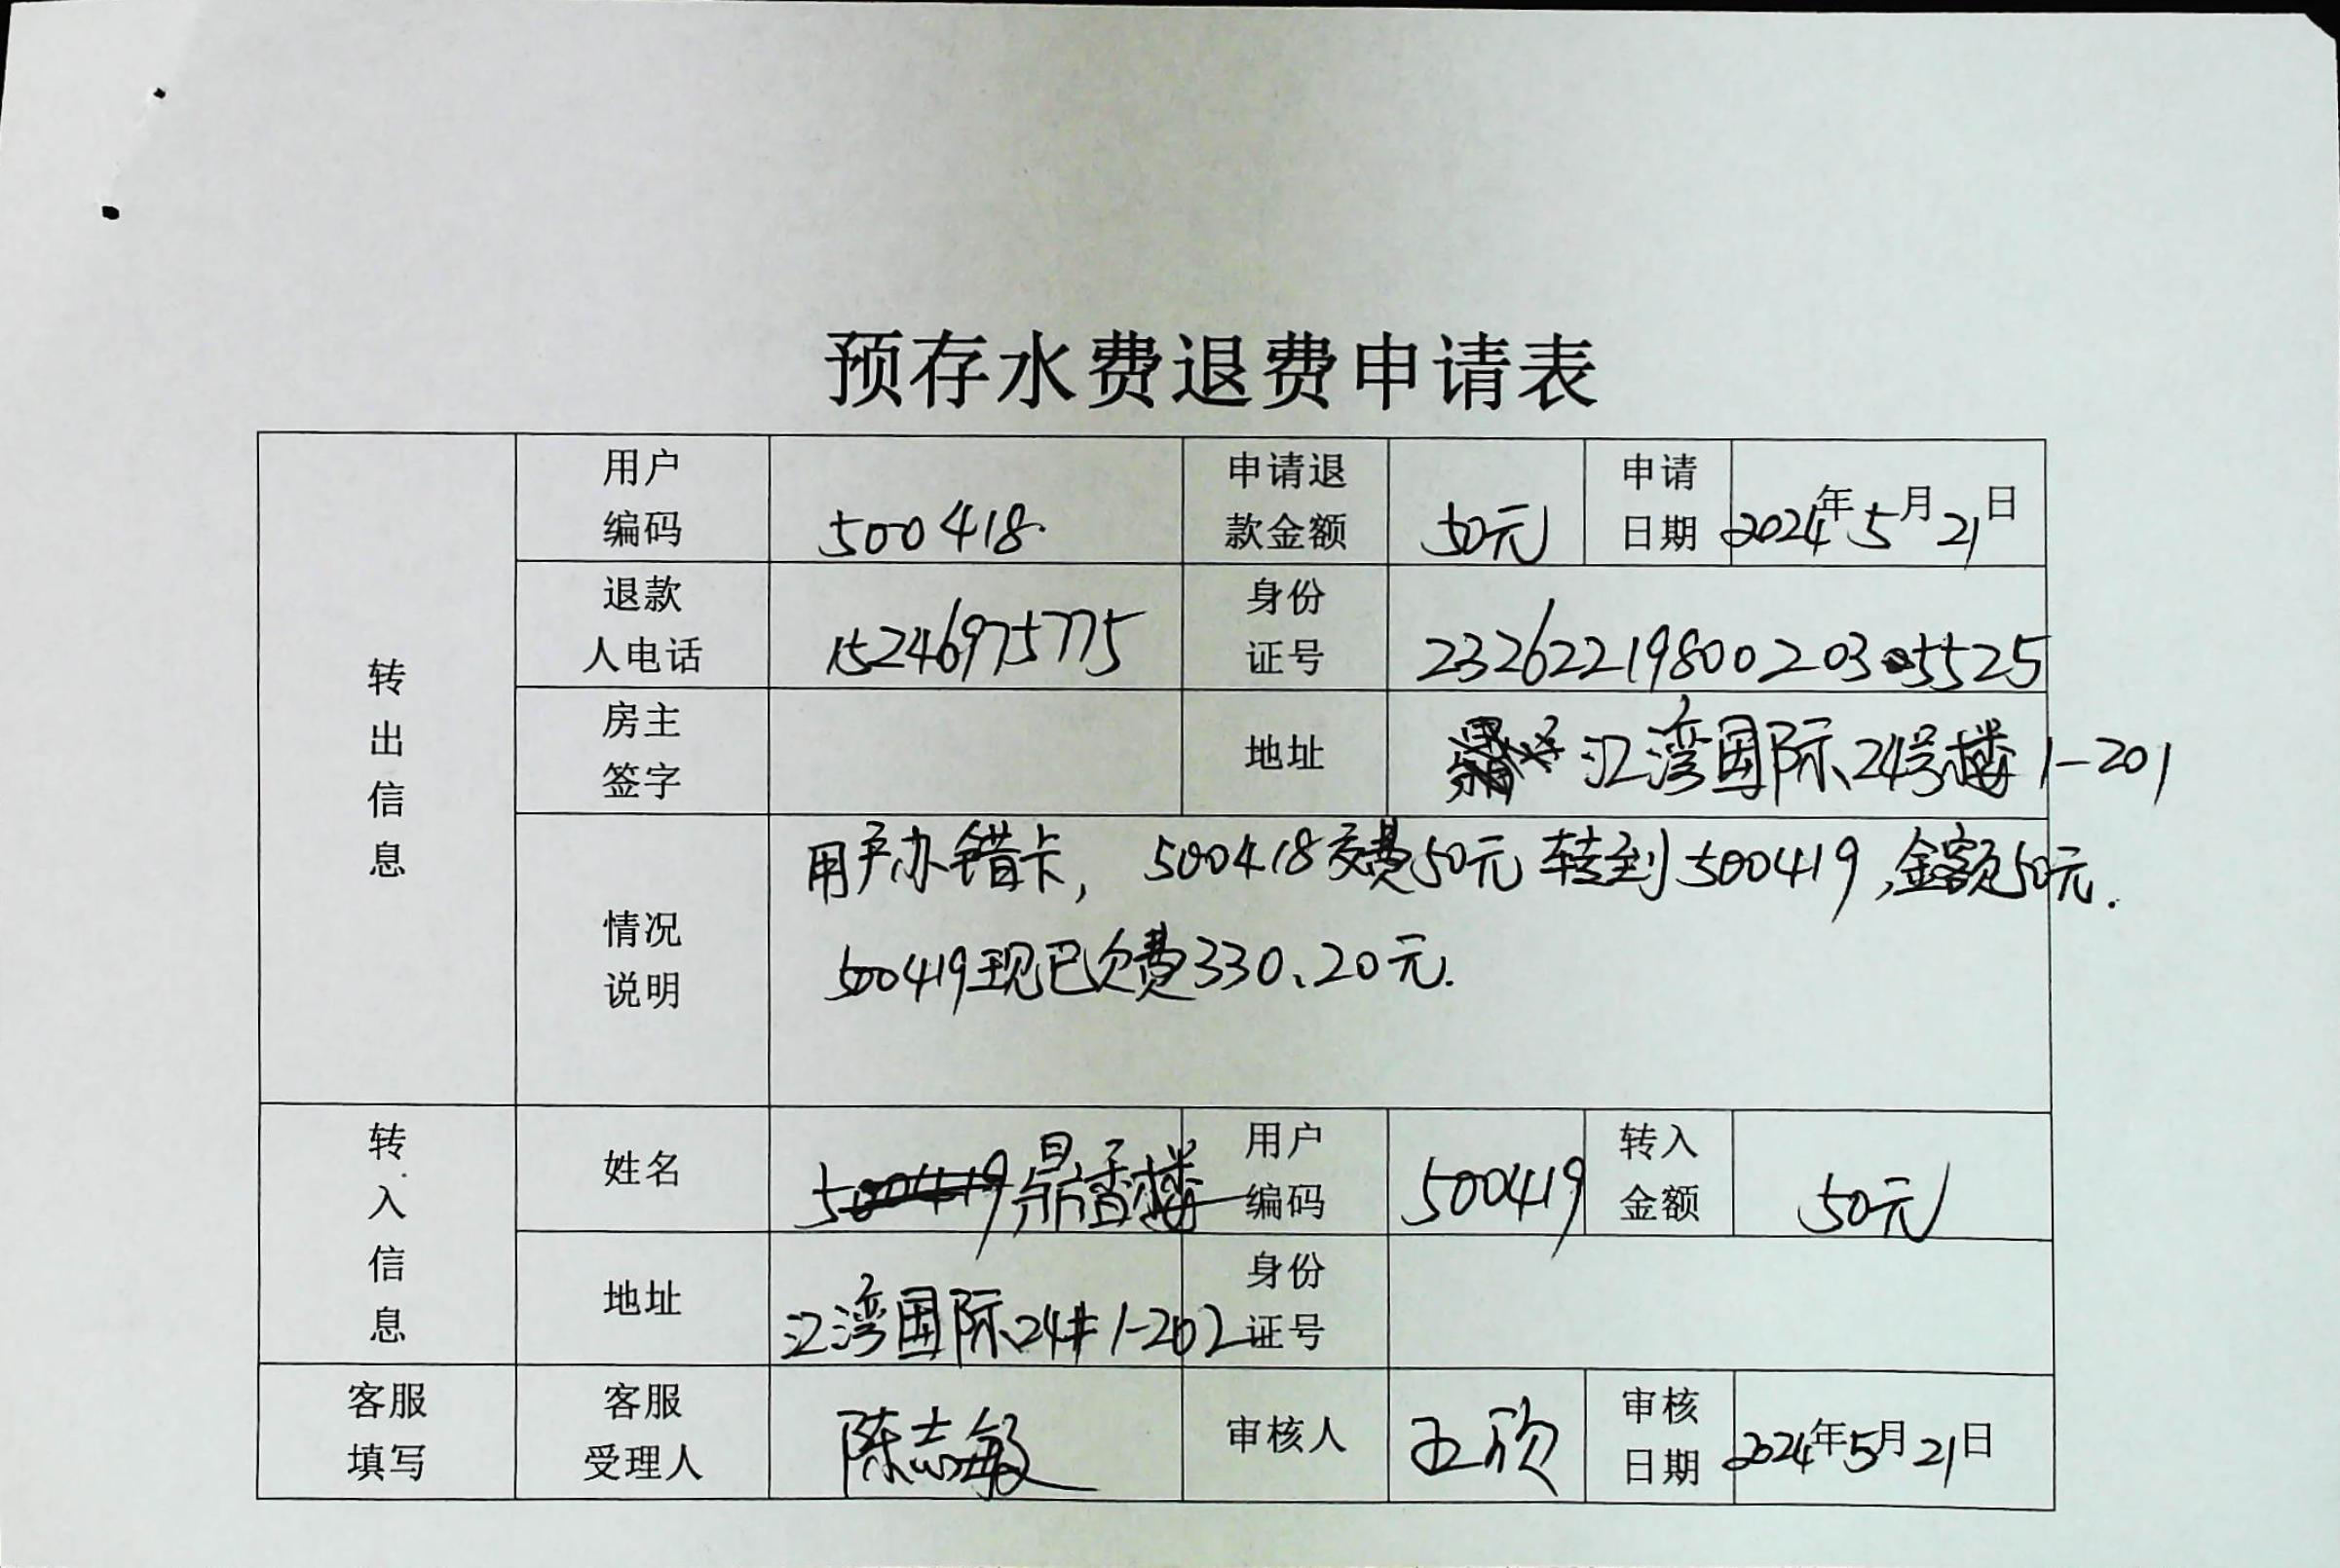 预存水费退费申请表
用户编码 500418 申请退款金额 50元 申请日期 2024年5月21日
退款人电话 15246975775 身份证号 232622198002035525
转出信息
房主签字 地址 江湾国际24号楼1-201
情况说明 用户办错卡, 500418交费50元转到500419,金额50元.
500419现已欠费330.20元.
转入信息
姓名 500419 鼎香楼 用户编码 500419 转入金额 50元
地址 江湾国际24# 1-202 身份证号
客服填写 客服受理人 陈志敏 审核人 王欣 审核日期 2024年5月21日